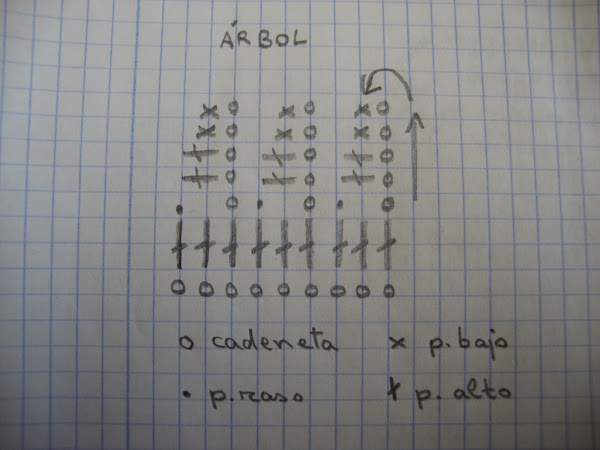 ÁRBOL
o cadeneta x p. bajo
• p. raso ƚ p. alto